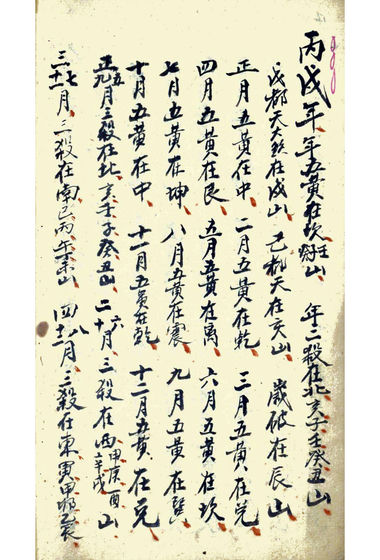 丙戌年 年五黃在坎壬山 年三殺在北亥子壬癸丑山
戊都天大煞在戌山 己都天在亥山 歲破在辰山
正月五黃在中 二月五黃在乾 三月五黃在兌
四月五黃在艮 五月五黃在离 六月五黃在坎
七月五黃在坤 八月五黃在震 九月五黃在巽
十月五黃在中 十一月五黃在乾 十二月五黃在兌
正五九月三殺在北亥壬子癸丑山 二六十月三殺在西申庚酉辛戌山
三七十一月三殺在南巳丙午未山 四八十二月三殺在東寅甲卯乙辰